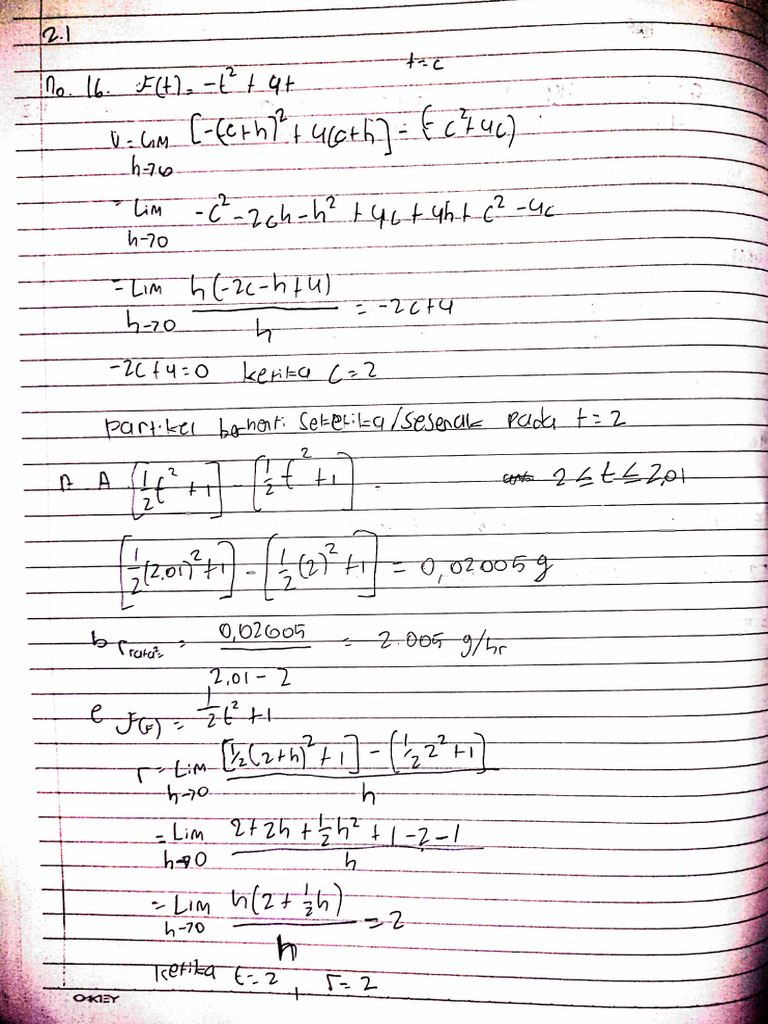 2.1
t=c
No. 16. F(t) = -t² + 4t
V = Lim [-(c+h)² + 4(c+h] = (-c²+4c)
h→0
= Lim -c² - 2ch - h² + 4c + 4h + c² - 4c
h→0
= Lim h(-2c-h+4) = -2c+4
h→0 h
-2c+4=0 ketika c=2
Partikel berhenti seketika/sesenak pada t=2
A [½t² + 1] - [½t² + 1] 2 ≤ t ≤ 2,01
[½(2.01)² + 1] - [½(2)² + 1] = 0,02005 g
b r rata² = 0,02005 = 2.005 g/hr
2.01 - 2
c F(t) = ½t² + 1
r = Lim [½(2+h)² + 1] - [½2² + 1]
h→0 h
= Lim 2 + 2h + ½h² + 1 - 2 - 1
h→0 h
= Lim h(2 + ½h) = 2
h→0 h
ketika t=2, r=2
OKEY